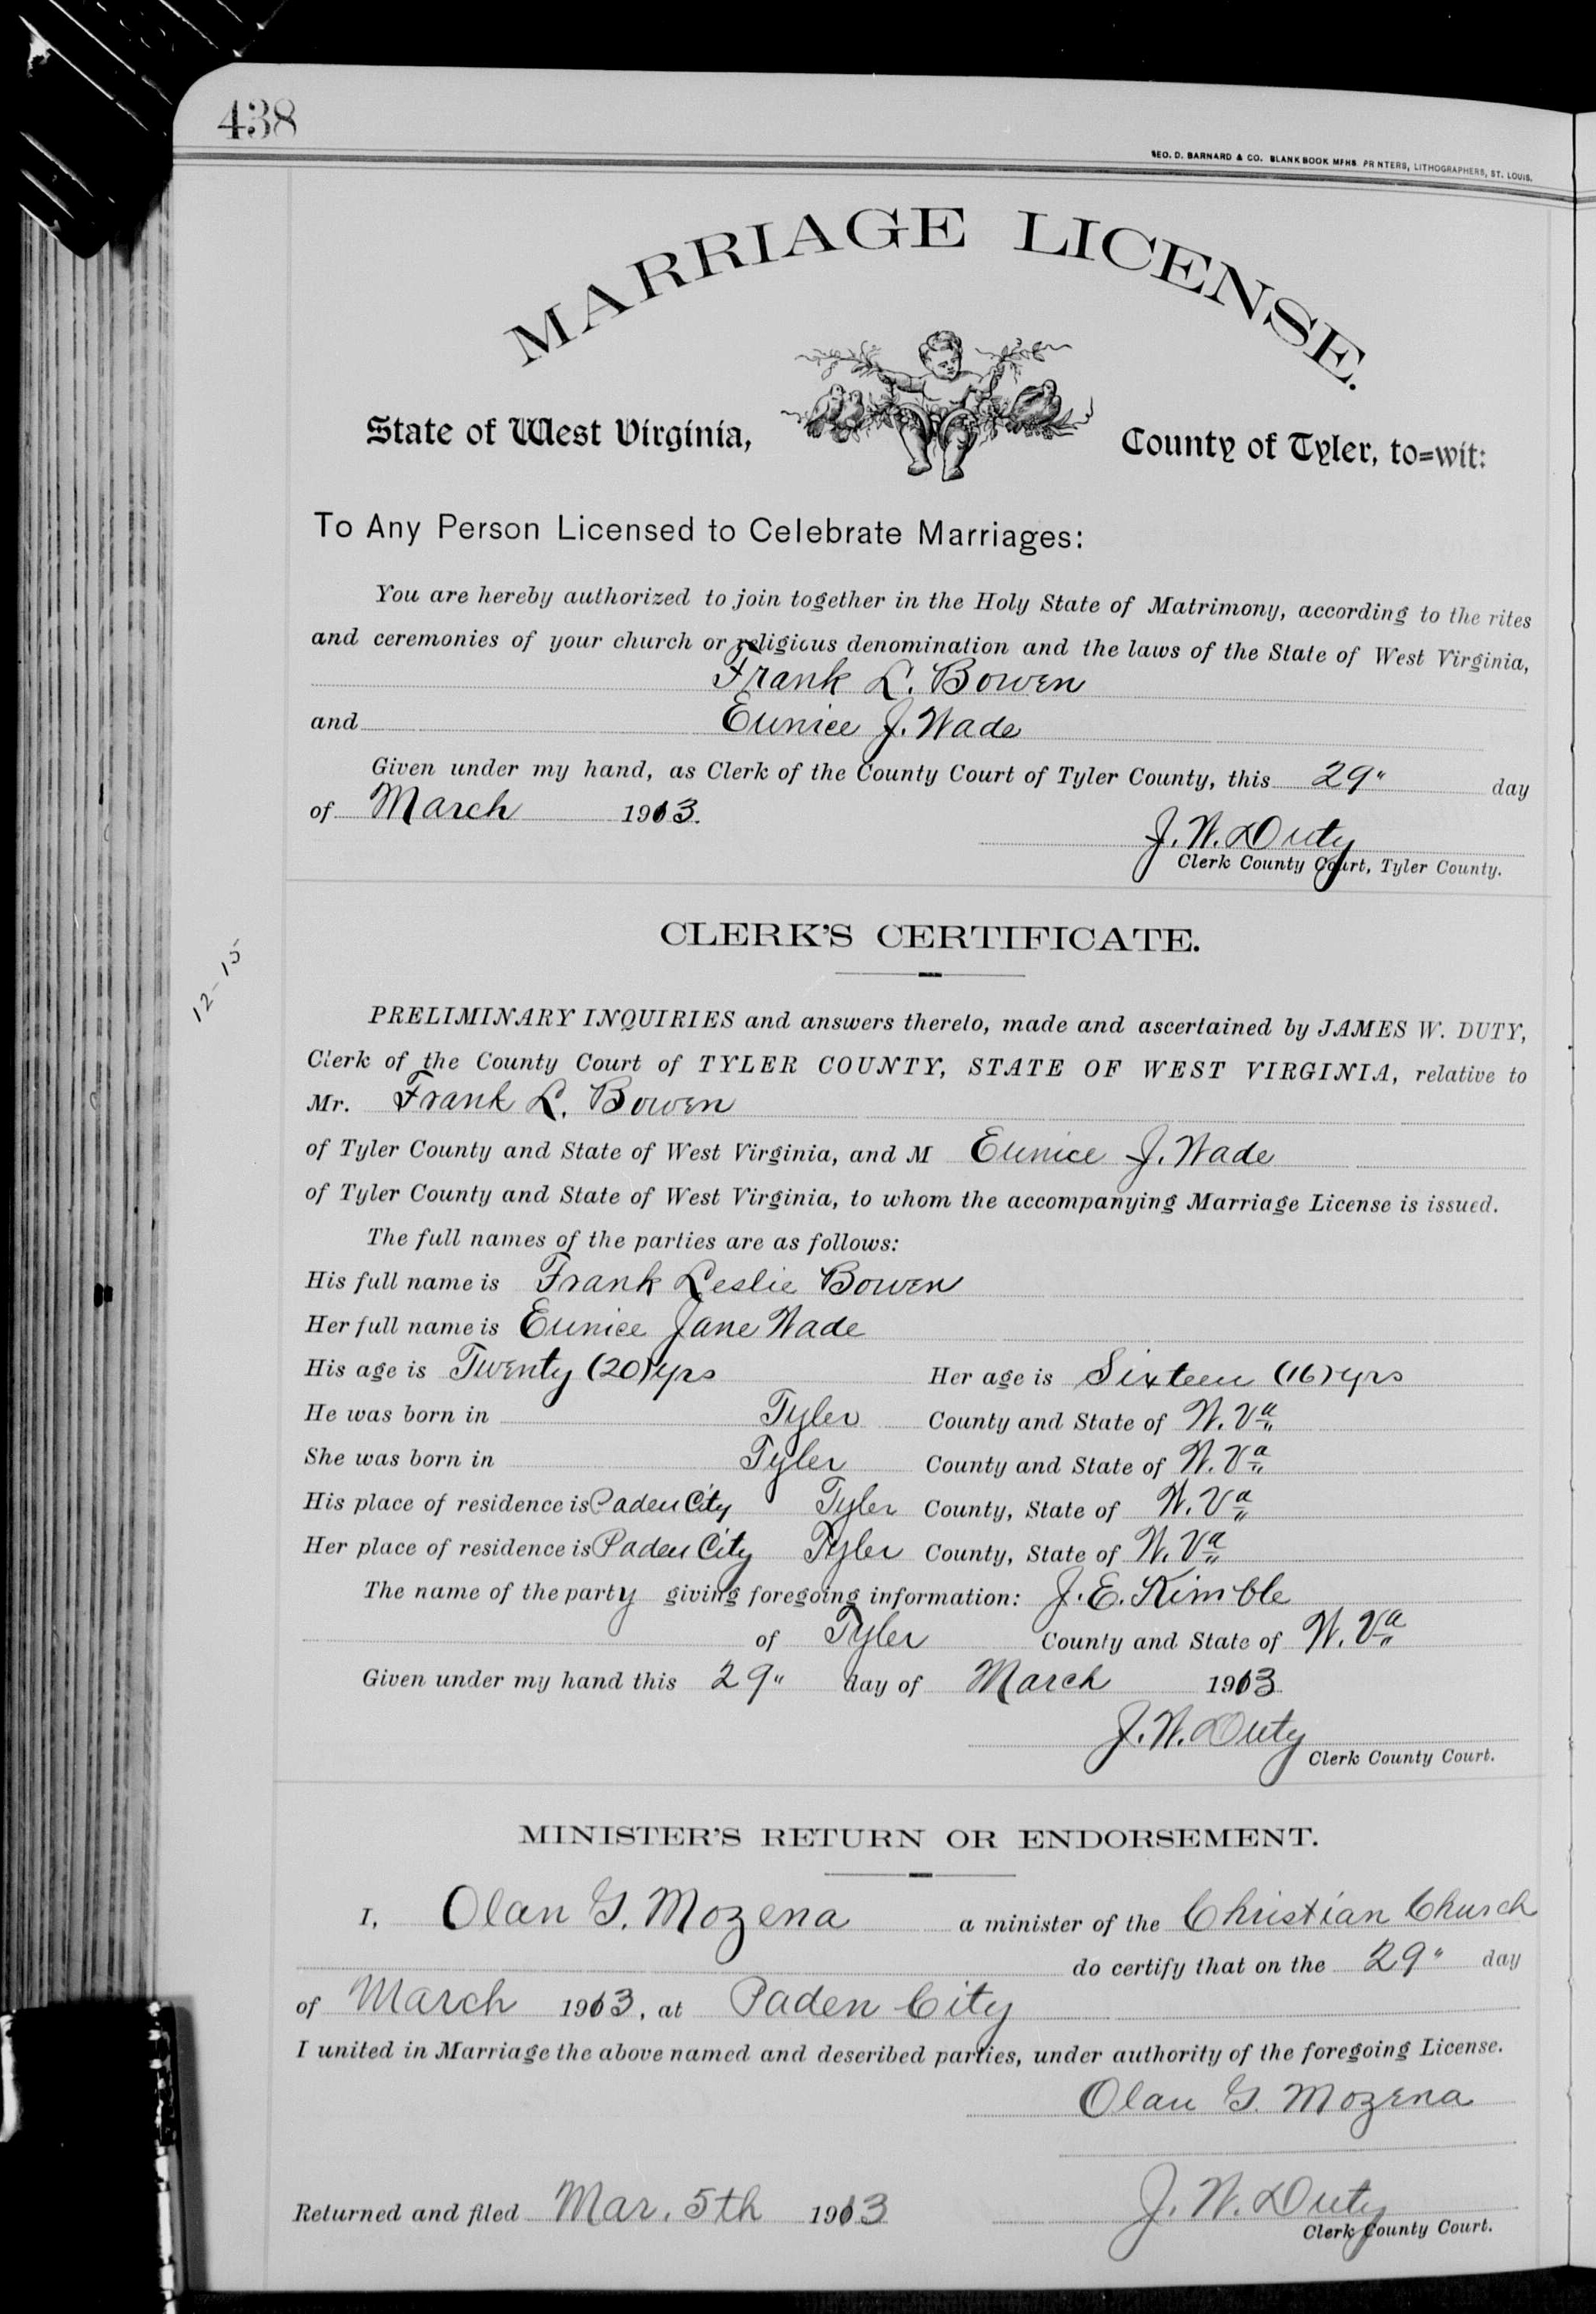 438
GEO. D. BARNARD & CO. BLANK BOOK MFRS. PRINTERS, LITHOGRAPHERS, ST. LOUIS.
MARRIAGE LICENSE.
State of West Virginia, County of Tyler, to=wit:
To Any Person Licensed to Celebrate Marriages:
You are hereby authorized to join together in the Holy State of Matrimony, according to the rites
and ceremonies of your church or religious denomination and the laws of the State of West Virginia,
Frank L. Bowen
and Eunice J. Wade
Given under my hand, as Clerk of the County Court of Tyler County, this 29" day
of March 1913.
J. W. Duty
Clerk County Court, Tyler County.
CLERK'S CERTIFICATE.
12-15
PRELIMINARY INQUIRIES and answers thereto, made and ascertained by JAMES W. DUTY,
Clerk of the County Court of TYLER COUNTY, STATE OF WEST VIRGINIA, relative to
Mr. Frank L. Bowen
of Tyler County and State of West Virginia, and M Eunice J. Wade
of Tyler County and State of West Virginia, to whom the accompanying Marriage License is issued.
The full names of the parties are as follows:
His full name is Frank Leslie Bowen
Her full name is Eunice Jane Wade
His age is Twenty (20) yrs Her age is Sixteen (16) yrs
He was born in Tyler County and State of W. Va
She was born in Tyler County and State of W. Va
His place of residence is Paden City Tyler County, State of W. Va
Her place of residence is Paden City Tyler County, State of W. Va
The name of the party giving foregoing information: J. E. Kimble
of Tyler County and State of W. Va
Given under my hand this 29" day of March 1913
J. W. Duty
Clerk County Court.
MINISTER'S RETURN OR ENDORSEMENT.
I, Olan G. Mozena a minister of the Christian Church
do certify that on the 29" day
of March 1913, at Paden City
I united in Marriage the above named and described parties, under authority of the foregoing License.
Olan G. Mozena
Returned and filed Mar. 5th 1913 J. W. Duty
Clerk County Court.